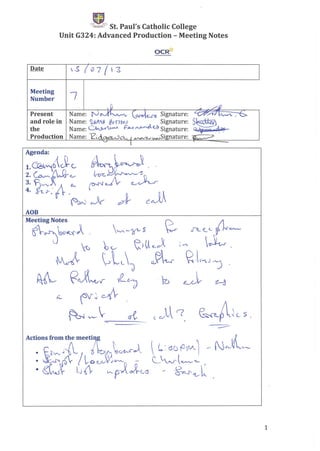 St. Paul's Catholic College
Unit G324: Advanced Production – Meeting Notes
OCR
Date 15/07/13
Meeting Number 7
Present and role in the Production
Name: Nathan Signature:
Name: Sarah Signature:
Name: Charlene Fernandes Signature:
Name: Signature:
Agenda:
1. Complete storyboard.
2. Complete locations
3. Find a priest actor
4. Script.
Point of call
AOB
Meeting Notes
Storyboard images for reception
to be filled in later.
Most likely after filming.
Ask Father Ray to act as
a priest.
Point of call? Graphics.
Actions from the meeting
• Finish storyboard (6:00PM) - Nathan
• Script / Location - Charlene
• Shot list updates - Sarah.
1